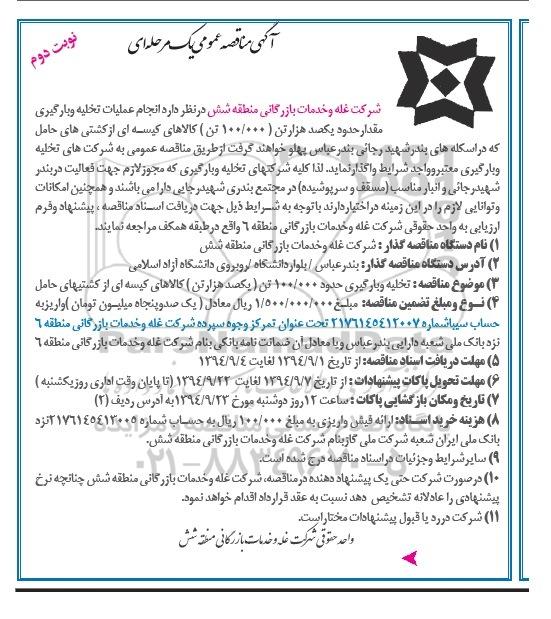 آگهی مناقصه عمومی یک مرحله‌ای
نوبت دوم
شرکت غله وخدمات بازرگانی منطقه شش درنظر دارد انجام عملیات تخلیه وبارگیری
مقدارحدود یکصد هزارتن ( ۱۰۰/۰۰۰ تن ) کالاهای کیسه ای ازکشتی های حامل
که دراسکله های بندرشهید رجائی بندرعباس پهلو خواهند گرفت ازطریق مناقصه عمومی به شرکت های تخلیه
وبارگیری معتبروواجد شرایط واگذارنماید. لذا کلیه شرکتهای تخلیه وبارگیری که مجوزلازم جهت فعالیت دربندر
شهیدرجائی و انبار مناسب (مسقف و سرپوشیده) در مجتمع بندری شهیدرجایی دارا می باشند و همچنین امکانات
وتوانایی لازم را در این زمینه دراختیاردارند با توجه به شرایط ذیل جهت دریافت اسناد مناقصه ، پیشنهاد وفرم
ارزیابی به واحد حقوقی شرکت غله وخدمات بازرگانی منطقه ۶ واقع درطبقه همکف مراجعه نمایند.
۱) نام دستگاه مناقصه گذار : شرکت غله وخدمات بازرگانی منطقه شش
۲) آدرس دستگاه مناقصه گذار: بندرعباس / بلواردانشگاه /روبروی دانشگاه آزاد اسلامی
۳) موضوع مناقصه : تخلیه وبارگیری حدود ۱۰۰/۰۰۰ تن ( یکصد هزارتن ) کالاهای کیسه ای از کشتیهای حامل
۴) نوع و مبلغ تضمین مناقصه: مبلغ۱/۵۰۰/۰۰۰/۰۰۰ ریال معادل ( یک صدوپنجاه میلیون تومان )واریزبه
حساب سیباشماره ۲۱۷۶۱۴۵۴۱۲۰۰۷ تحت عنوان تمرکز وجوه سپرده شرکت غله وخدمات بازرگانی منطقه ۶
نزد بانک ملی شعبه دارایی بندرعباس ویا معادل آن ضمانت نامه بانکی بنام شرکت غله وخدمات بازرگانی منطقه ۶
۵) مهلت دریافت اسناد مناقصه: از تاریخ ۱۳۹۴/۹/۱ لغایت ۱۳۹۴/۹/۴
۶) مهلت تحویل پاکات پیشنهادات : از تاریخ ۱۳۹۴/۹/۷ لغایت ۱۳۹۴/۹/۲۲ (تا پایان وقت اداری روزیکشنبه )
۷) تاریخ ومکان بازگشایی پاکات : ساعت ۱۲روز دوشنبه مورخ ۱۳۹۴/۹/۲۳به آدرس ردیف (۲)
۸) هزینه خرید اسناد: ارائه فیش واریزی به مبلغ ۱۰۰/۰۰۰ ریال به حساب شماره ۲۱۷۶۱۴۵۴۱۳۰۰۵نزد
بانک ملی ایران شعبه شرکت ملی گازبنام شرکت غله وخدمات بازرگانی منطقه شش.
۹) سایر شرایط وجزئیات دراسناد مناقصه درج شده است.
۱۰) درصورت شرکت حتی یک پیشنهاد دهنده درمناقصه، شرکت غله وخدمات بازرگانی منطقه شش چنانچه نرخ
پیشنهادی را عادلانه تشخیص دهد نسبت به عقد قرارداد اقدام خواهد نمود.
۱۱) شرکت دررد یا قبول پیشنهادات مختاراست.
واحد حقوقی شرکت غله و خدمات بازرگانی منطقه شش